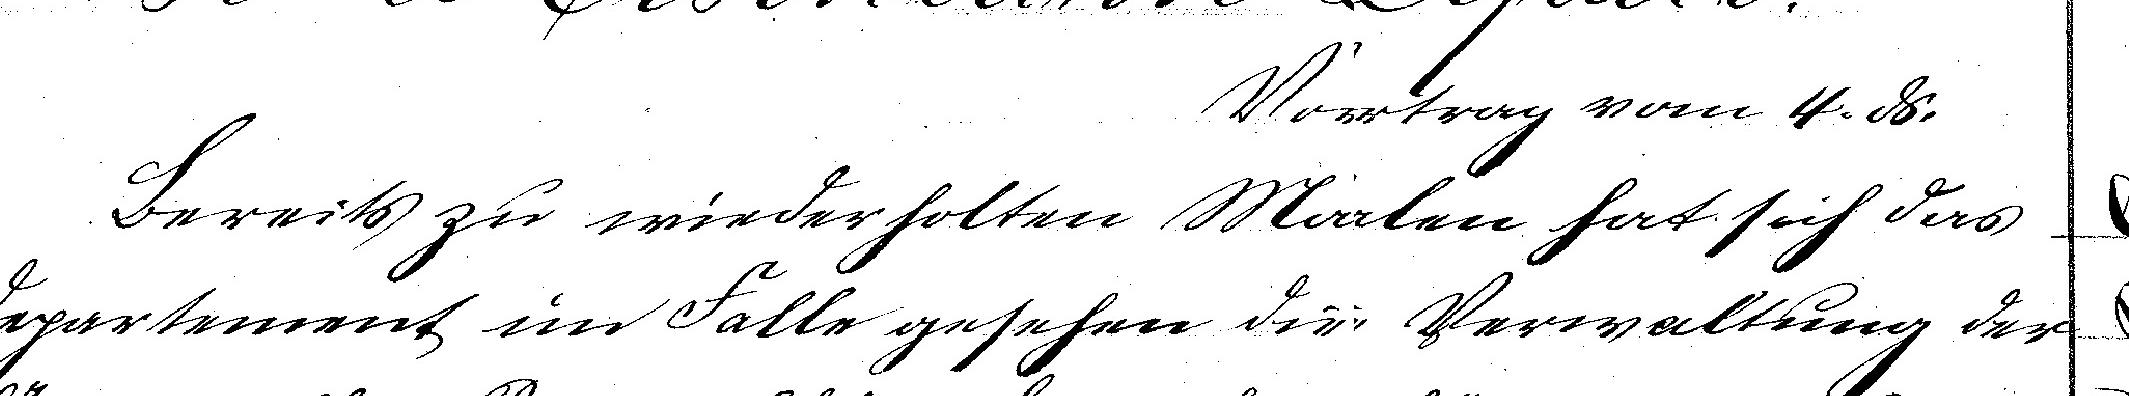 Vortrag vom 4. ds.
Bereits zu wiederholten Malen hat sich das
departement im Falle gesehen die Verwaltung der